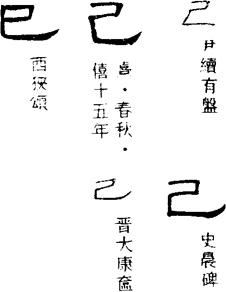 己
尹續有盤
己
史晨碑
己
熹·春秋·
僖十五年
己
晉大康奩
巳
西狹頌